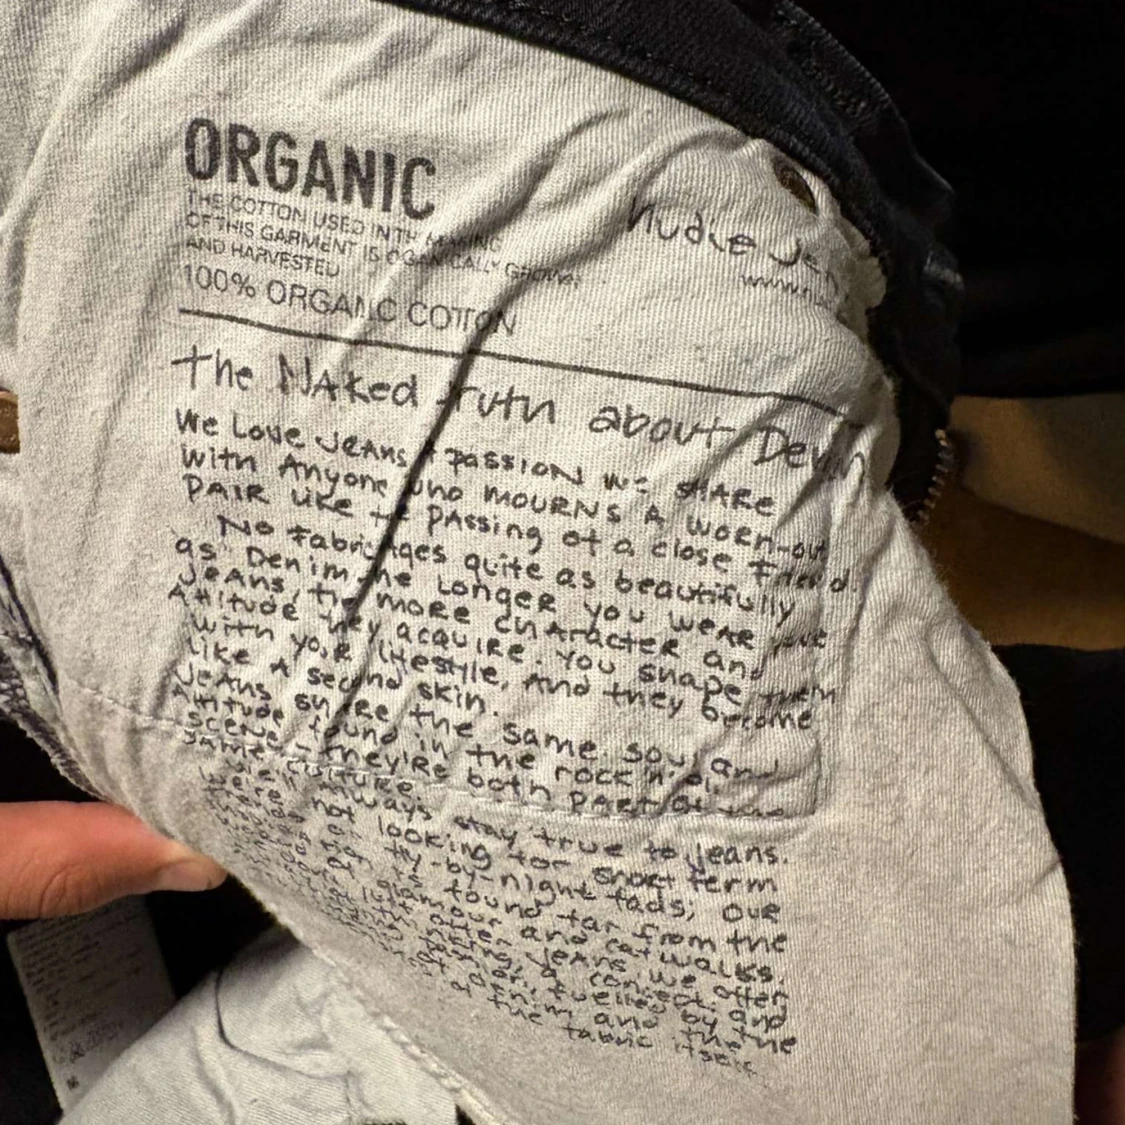 ORGANIC
THE COTTON USED IN THE MAKING
OF THIS GARMENT IS ORGANICALLY GROWN
AND HARVESTED
100% ORGANIC COTTON
Nudie Jea
www.nu
The NAked truth about Denim
We Love JEANS A PASSION WE SHARE
WITH ANYONE who MOURNS A WORN-out
PAIR LIKE THE PAssing of a close Friend.
No Fabric Ages quite as beautifully
as Denim. The LONGER you WEAR your
JEANS, The more CHARACTER and
Attitude They acquire. You shape them
with your lifestyle, And they become
like A second skin.
JEANS share the same soul and
Attitude found in the rock'n'roll
scene - They're both PART of the
same culture.
Always stay true to jeans.
We're not looking for short term
fly-by-night fads; our
found far from the
glamour and catwalks.
jeans we offer
fueled by the
denim and the
the fabric itself.